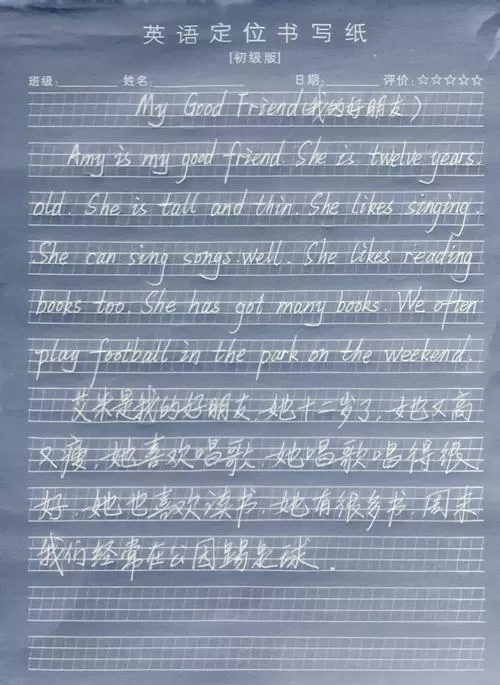 英语定位书写纸
[初级版]
班级: 姓名: 日期: 评价: ☆☆☆☆☆
My Good Friend(我的好朋友)
Amy is my good friend. She is twelve years
old. She is tall and thin. She likes singing.
She can sing songs well. She likes reading
books too. She has got many books. We often
play football in the park on the weekend.
艾米是我的好朋友,她十二岁了,她又高
又瘦,她喜欢唱歌,她唱歌唱得很
好,她也喜欢读书,她有很多书,周末
我们经常在公园踢足球.